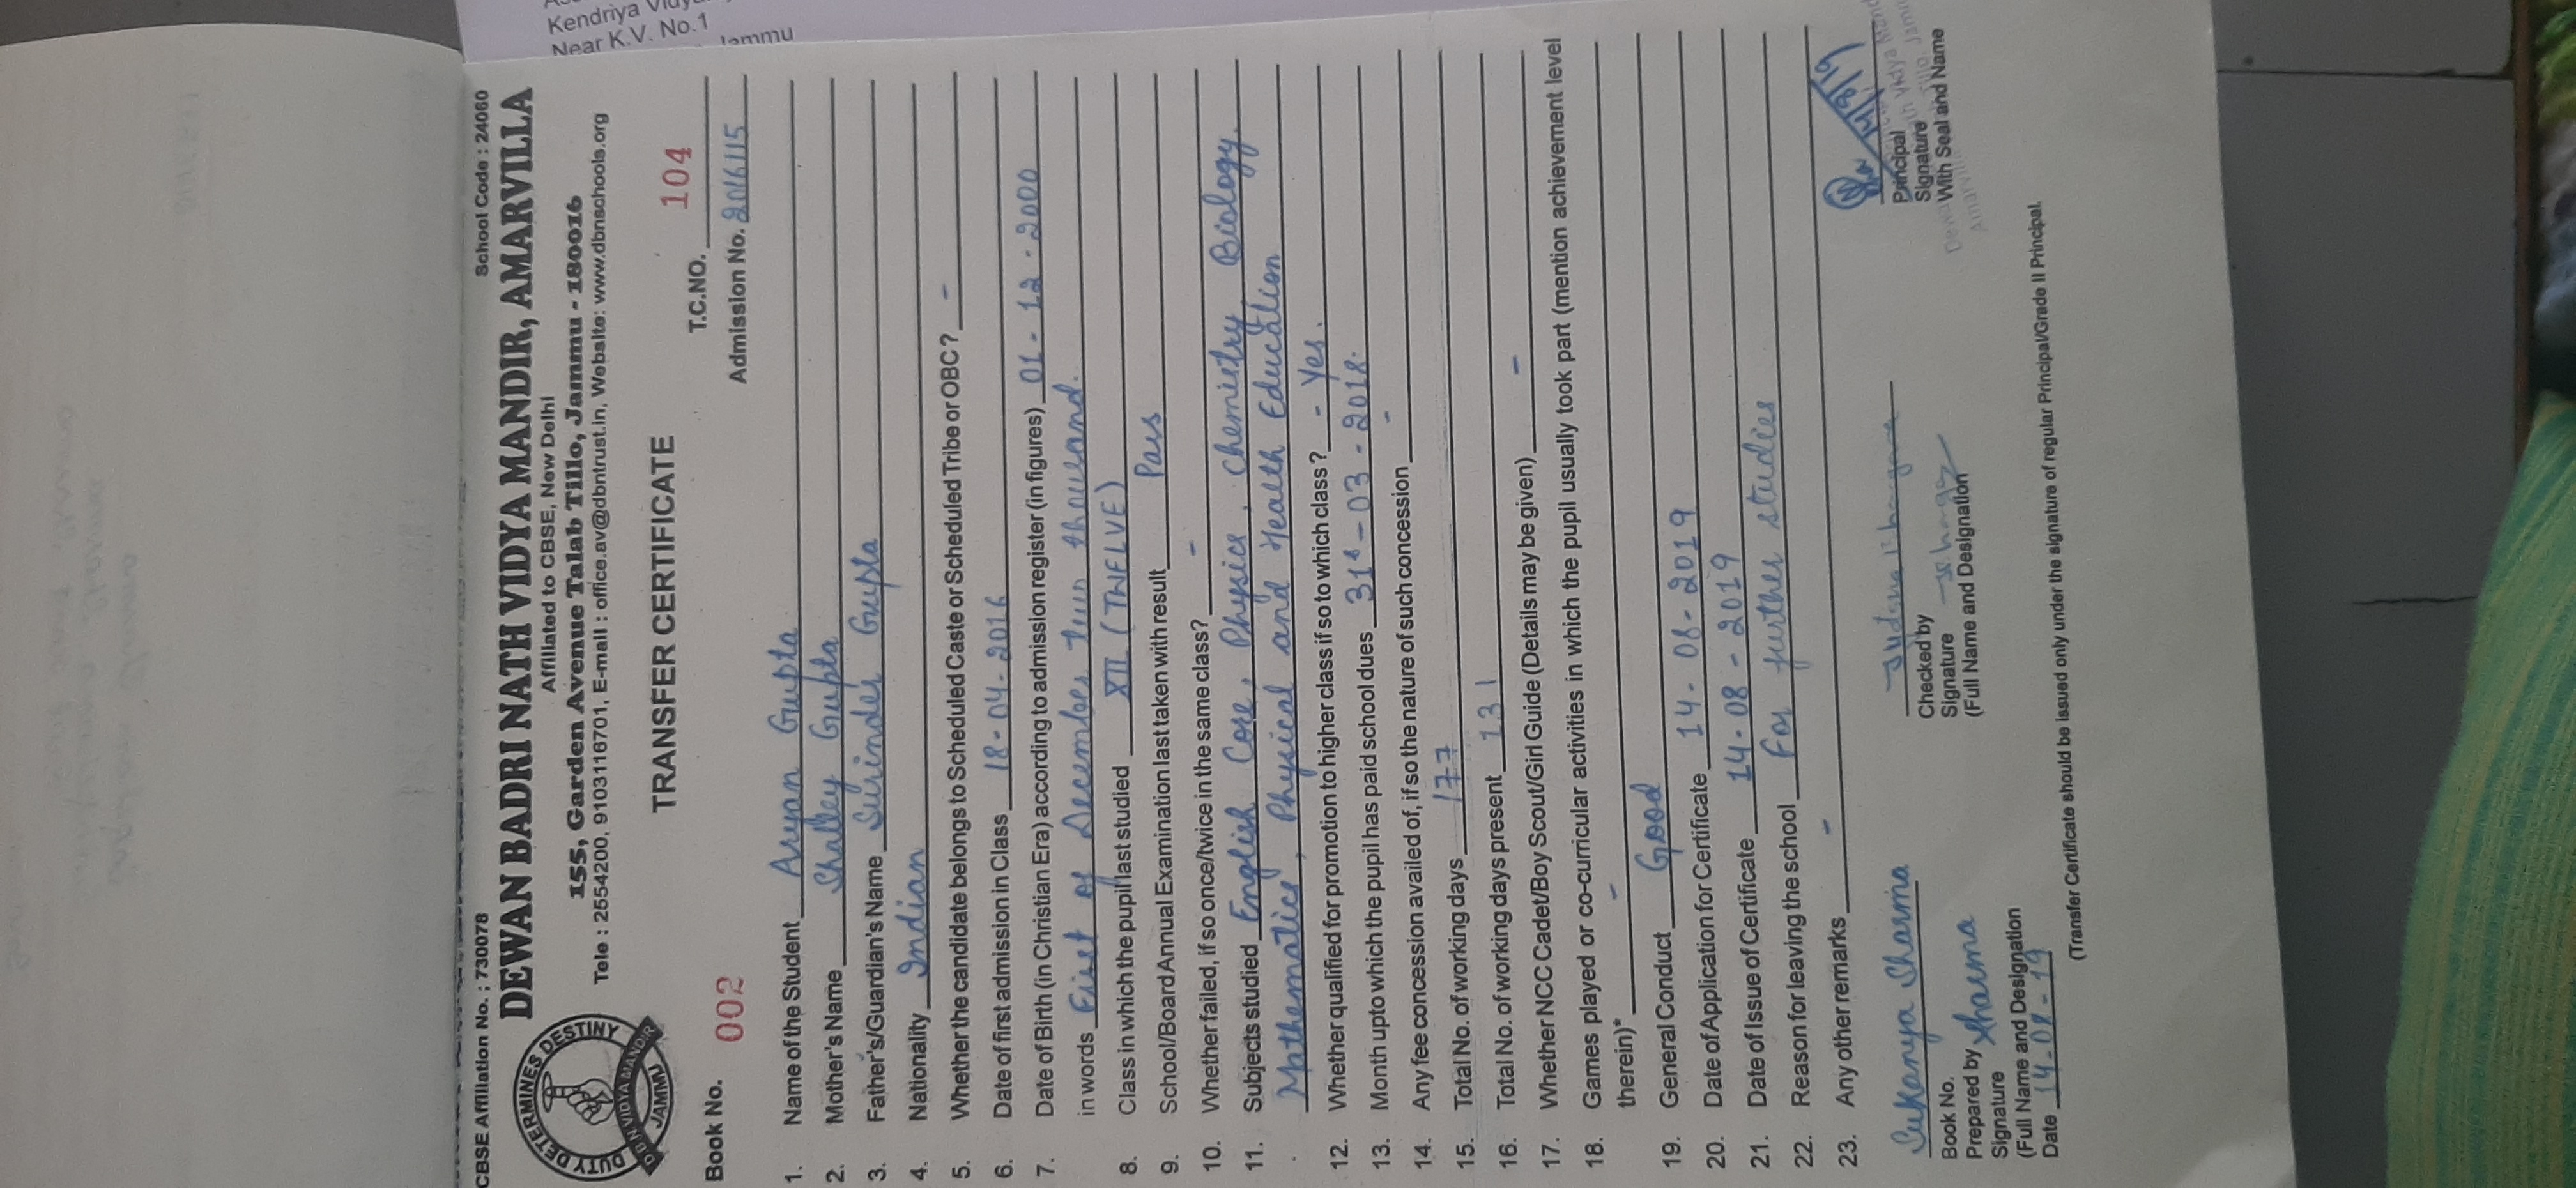 Kendriya
Near K.V. No.1
Jammu
CBSE Affiliation No. : 730078 School Code : 24060
DEWAN BADRI NATH VIDYA MANDIR, AMARVILLA
Affiliated to CBSE, New Delhi
155, Garden Avenue Talab Tillo, Jammu - 180016
Tele : 2554200, 9103116701, E-mail : office.av@dbntrust.in, Website: www.dbnschools.org
DUTY DETERMINES DESTINY
D.B.N VIDYA MANDIR
JAMMU
TRANSFER CERTIFICATE
Book No. 002 T.C.NO. 104
Admission No. 2016115
1. Name of the Student Aryan Gupta
2. Mother's Name Shalley Gupta
3. Father's/Guardian's Name Surinder Gupta
4. Nationality Indian
5. Whether the candidate belongs to Scheduled Caste or Scheduled Tribe or OBC? -
6. Date of first admission in Class 18-04-2016
7. Date of Birth (in Christian Era) according to admission register (in figures) 01-12-2000
in words First of December Two thousand.
8. Class in which the pupil last studied XII (TWELVE)
9. School/Board Annual Examination last taken with result Pass
10. Whether failed, if so once/twice in the same class? -
11. Subjects studied English Core, Physics, Chemistry, Biology,
Mathematics, Physical and Health Education
12. Whether qualified for promotion to higher class if so to which class? - Yes.
13. Month upto which the pupil has paid school dues 31st-03-2018.
14. Any fee concession availed of, if so the nature of such concession -
15. Total No. of working days 177
16. Total No. of working days present 131
17. Whether NCC Cadet/Boy Scout/Girl Guide (Details may be given) -
18. Games played or co-curricular activities in which the pupil usually took part (mention achievement level
therein)* -
19. General Conduct Good
20. Date of Application for Certificate 14-08-2019
21. Date of Issue of Certificate 14-08-2019
22. Reason for leaving the school For further studies
23. Any other remarks -
Sukanya Sharma
Book No.
Prepared by Sharma
Signature
(Full Name and Designation
Date 14-08-19
Checked by
Signature
(Full Name and Designation
14/8/19
Principal
Signature
With Seal and Name
(Transfer Certificate should be issued only under the signature of regular Principal/Grade II Principal.